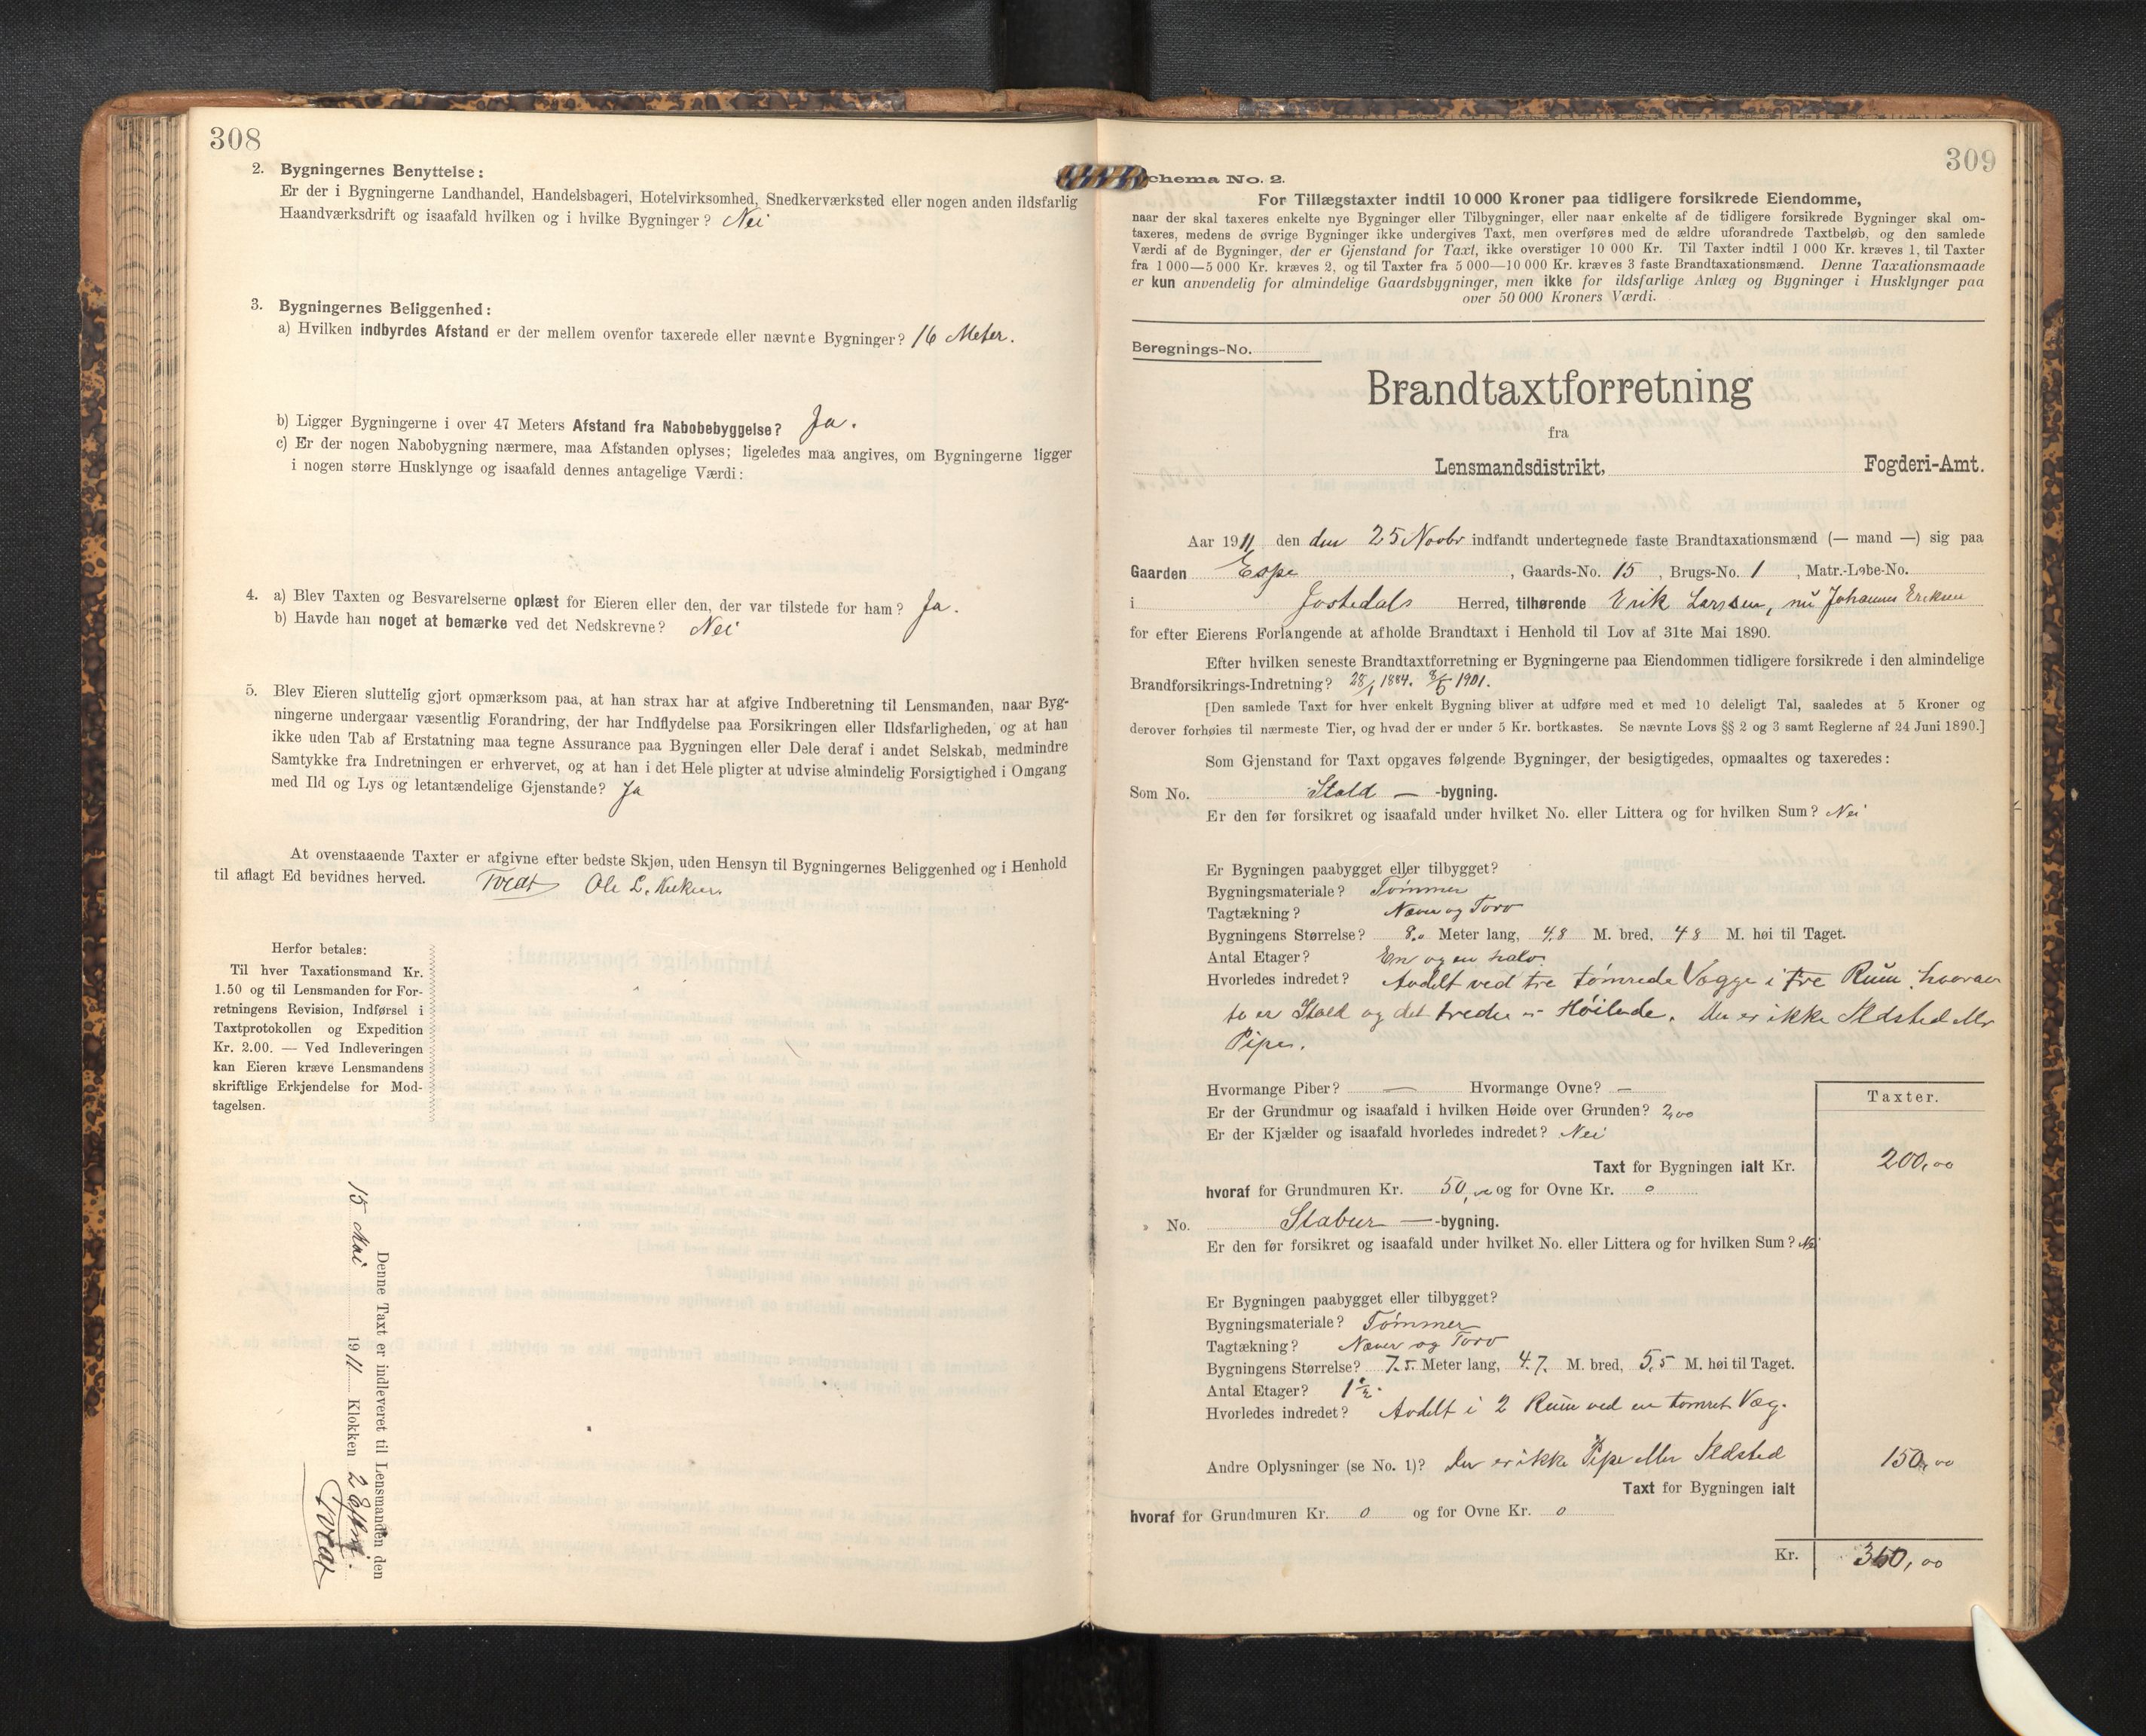 308
2. Bygningernes Benyttelse:
Er der i Bygningerne Landhandel, Handelsbageri, Hotelvirksomhed, Snedkerværksted eller nogen anden ildsfarlig
Haandværksdrift og isaafald hvilken og i hvilke Bygninger? Nei
3. Bygningernes Beliggenhed:
a) Hvilken indbyrdes Afstand er der mellem ovenfor taxerede eller nævnte Bygninger? 16 Meter.
b) Ligger Bygningerne i over 47 Meters Afstand fra Nabobebyggelse? Ja.
c) Er der nogen Nabobygning nærmere, maa Afstanden oplyses; ligeledes maa angives, om Bygningerne ligger
i nogen større Husklynge og isaafald dennes antagelige Værdi:
4. a) Blev Taxten og Besvarelserne oplæst for Eieren eller den, der var tilstede for ham? Ja.
b) Havde han noget at bemærke ved det Nedskrevne? Nei
5. Blev Eieren sluttelig gjort opmærksom paa, at han strax har at afgive Indberetning til Lensmanden, naar Byg-
ningerne undergaar væsentlig Forandring, der har Indflydelse paa Forsikringen eller Ildsfarligheden, og at han
ikke uden Tab af Erstatning maa tegne Assurance paa Bygningen eller Dele deraf i andet Selskab, medmindre
Samtykke fra Indretningen er erhvervet, og at han i det Hele pligter at udvise almindelig Forsigtighed i Omgang
med Ild og Lys og letantændelige Gjenstande? Ja
At ovenstaaende Taxter er afgivne efter bedste Skjøn, uden Hensyn til Bygningernes Beliggenhed og i Henhold
til aflagt Ed bevidnes herved. Tvedt Ole L.
Herfor betales:
Til hver Taxationsmand Kr.
1.50 og til Lensmanden for For-
retningens Revision, Indførsel i
Taxtprotokollen og Expedition
Kr. 2.00. — Ved Indleveringen
kan Eieren kræve Lensmandens
skriftlige Erkjendelse for Mod-
tagelsen.
Denne Taxt er indleveret til Lensmanden den
15 Mai 1911 Klokken 2 Eftm.
Tvedt
309
chema No. 2.
For Tillægstaxter indtil 10 000 Kroner paa tidligere forsikrede Eiendomme,
naar der skal taxeres enkelte nye Bygninger eller Tilbygninger, eller naar enkelte af de tidligere forsikrede Bygninger skal om-
taxeres, medens de øvrige Bygninger ikke undergives Taxt, men overføres med de ældre uforandrede Taxtbeløb, og den samlede
Værdi af de Bygninger, der er Gjenstand for Taxt, ikke overstiger 10 000 Kr. Til Taxter indtil 1 000 Kr. kræves 1, til Taxter
fra 1 000—5 000 Kr. kræves 2, og til Taxter fra 5 000—10 000 Kr. kræves 3 faste Brandtaxationsmænd. Denne Taxationsmaade
er kun anvendelig for almindelige Gaardsbygninger, men ikke for ildsfarlige Anlæg og Bygninger i Husklynger paa
over 50 000 Kroners Værdi.
Beregnings-No.
Brandtaxtforretning
fra
Lensmandsdistrikt, Fogderi-Amt.
Aar 1911 den den 25 Novbr indfandt undertegnede faste Brandtaxationsmænd (— mand —) sig paa
Gaarden Espe, Gaards-No. 15, Brugs-No. 1, Matr.-Løbe-No.
i Jostedals Herred, tilhørende Erik Larssen, nu Johannes Eriksen
for efter Eierens Forlangende at afholde Brandtaxt i Henhold til Lov af 31te Mai 1890.
Efter hvilken seneste Brandtaxtforretning er Bygningerne paa Eiendommen tidligere forsikrede i den almindelige
Brandforsikrings-Indretning? 28/1 1884. 1901.
[Den samlede Taxt for hver enkelt Bygning bliver at udføre med et med 10 deleligt Tal, saaledes at 5 Kroner og
derover forhøies til nærmeste Tier, og hvad der er under 5 Kr. bortkastes. Se nævnte Lovs §§ 2 og 3 samt Reglerne af 24 Juni 1890.]
Som Gjenstand for Taxt opgaves følgende Bygninger, der besigtigedes, opmaaltes og taxeredes:
Som No. Stald — -bygning.
Er den før forsikret og isaafald under hvilket No. eller Littera og for hvilken Sum? Nei
Er Bygningen paabygget eller tilbygget?
Bygningsmateriale? Tømmer
Tagtækning? Næver og Torv
Bygningens Størrelse? 8.0 Meter lang, 4.8 M. bred, 4 8 M. høi til Taget.
Antal Etager? En og en halv.
Hvorledes indredet? Avdelt ved tre tømrede Vægge i tre Rum, hvorav
to er Stald og det tredie er Høilade. Der er ikke Ildsted eller
Pipe.
Hvormange Piber? — Hvormange Ovne? —
Er der Grundmur og isaafald i hvilken Høide over Grunden? 2,00
Er der Kjælder og isaafald hvorledes indredet? Nei
Taxter.
Taxt for Bygningen ialt Kr. 200,00
hvoraf for Grundmuren Kr. 50,00 og for Ovne Kr. 0
» No. Stabur — -bygning.
Er den før forsikret og isaafald under hvilket No. eller Littera og for hvilken Sum? Nei
Er Bygningen paabygget eller tilbygget?
Bygningsmateriale? Tømmer
Tagtækning? Næver og Torv
Bygningens Størrelse? 7.5. Meter lang, 4.7. M. bred, 5,5 M. høi til Taget.
Antal Etager? 1 1/2.
Hvorledes indredet? Avdelt i 2 Rum ved en tømret Væg.
Andre Oplysninger (se No. 1)? Der er ikke Pipe eller Ildsted 150,00
Taxt for Bygningen ialt
hvoraf for Grundmuren Kr. 0 og for Ovne Kr. 0
Kr. 350,00